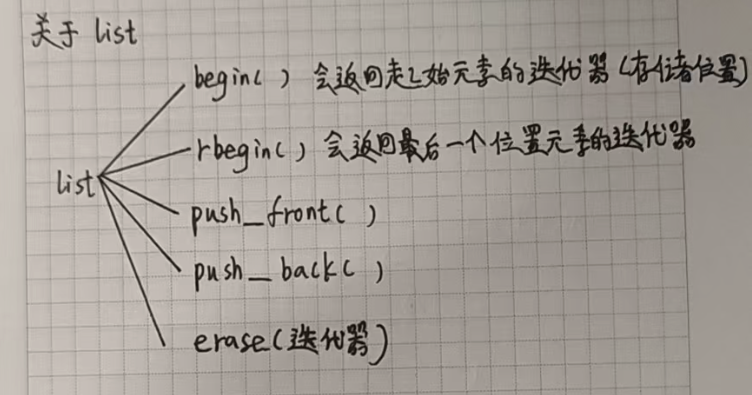 关于 list
begin( ) 会返回起始元素的迭代器 (存储位置)
rbegin( ) 会返回最后一个位置元素的迭代器
list
push_front( )
push_back( )
erase(迭代器)